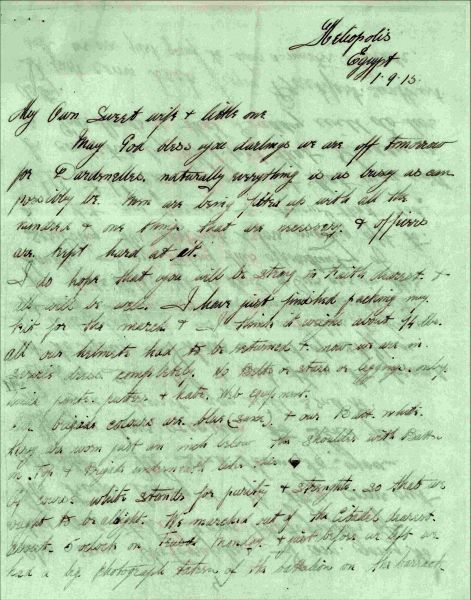 Heliopolis
Egypt
1.9.15.
My Own Sweet wife & little one
May God bless you darlings we are off tomorrow
for Dardenelles, naturally everything is as busy as can
possibly be. Men are being fitted up with all the
hundred & one things that are necessary & officers
are kept hard at it.
I do hope that you will be strong in faith dearest &
all will be well. I have just finished packing my
kit for the march & I think it weighs about
All our helmets had to be returned & now we are in
service dress completely. No Belts or stars or leggings, only
pants, putties & hats, Web Equipment.
Our brigade colours are blue & our Batt. white.
They are worn just an inch below the shoulder with Batt.
on top & Brigade underneath like this
Of course white stands for purity & strength. so that we
ought to be alright. We marched out of the Citadel dearest
about 5 o'clock on Monday, & just before we left we
had a big photograph taken of the battalion on the barrack